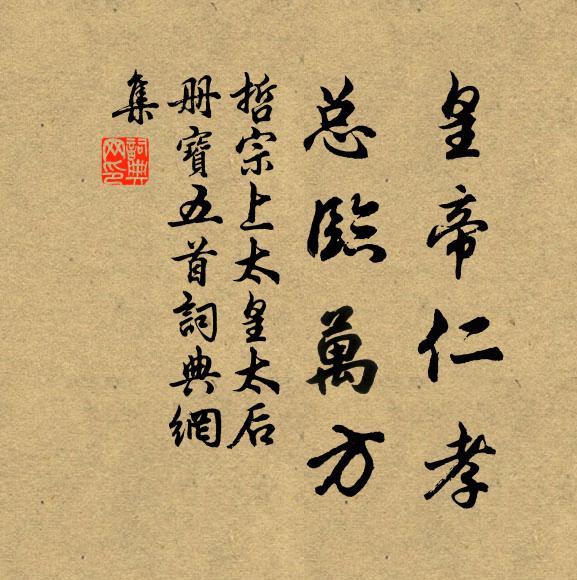 皇帝仁孝
总临萬方
哲宗上太皇太后
册寶五首詞典網
集
詞典網印